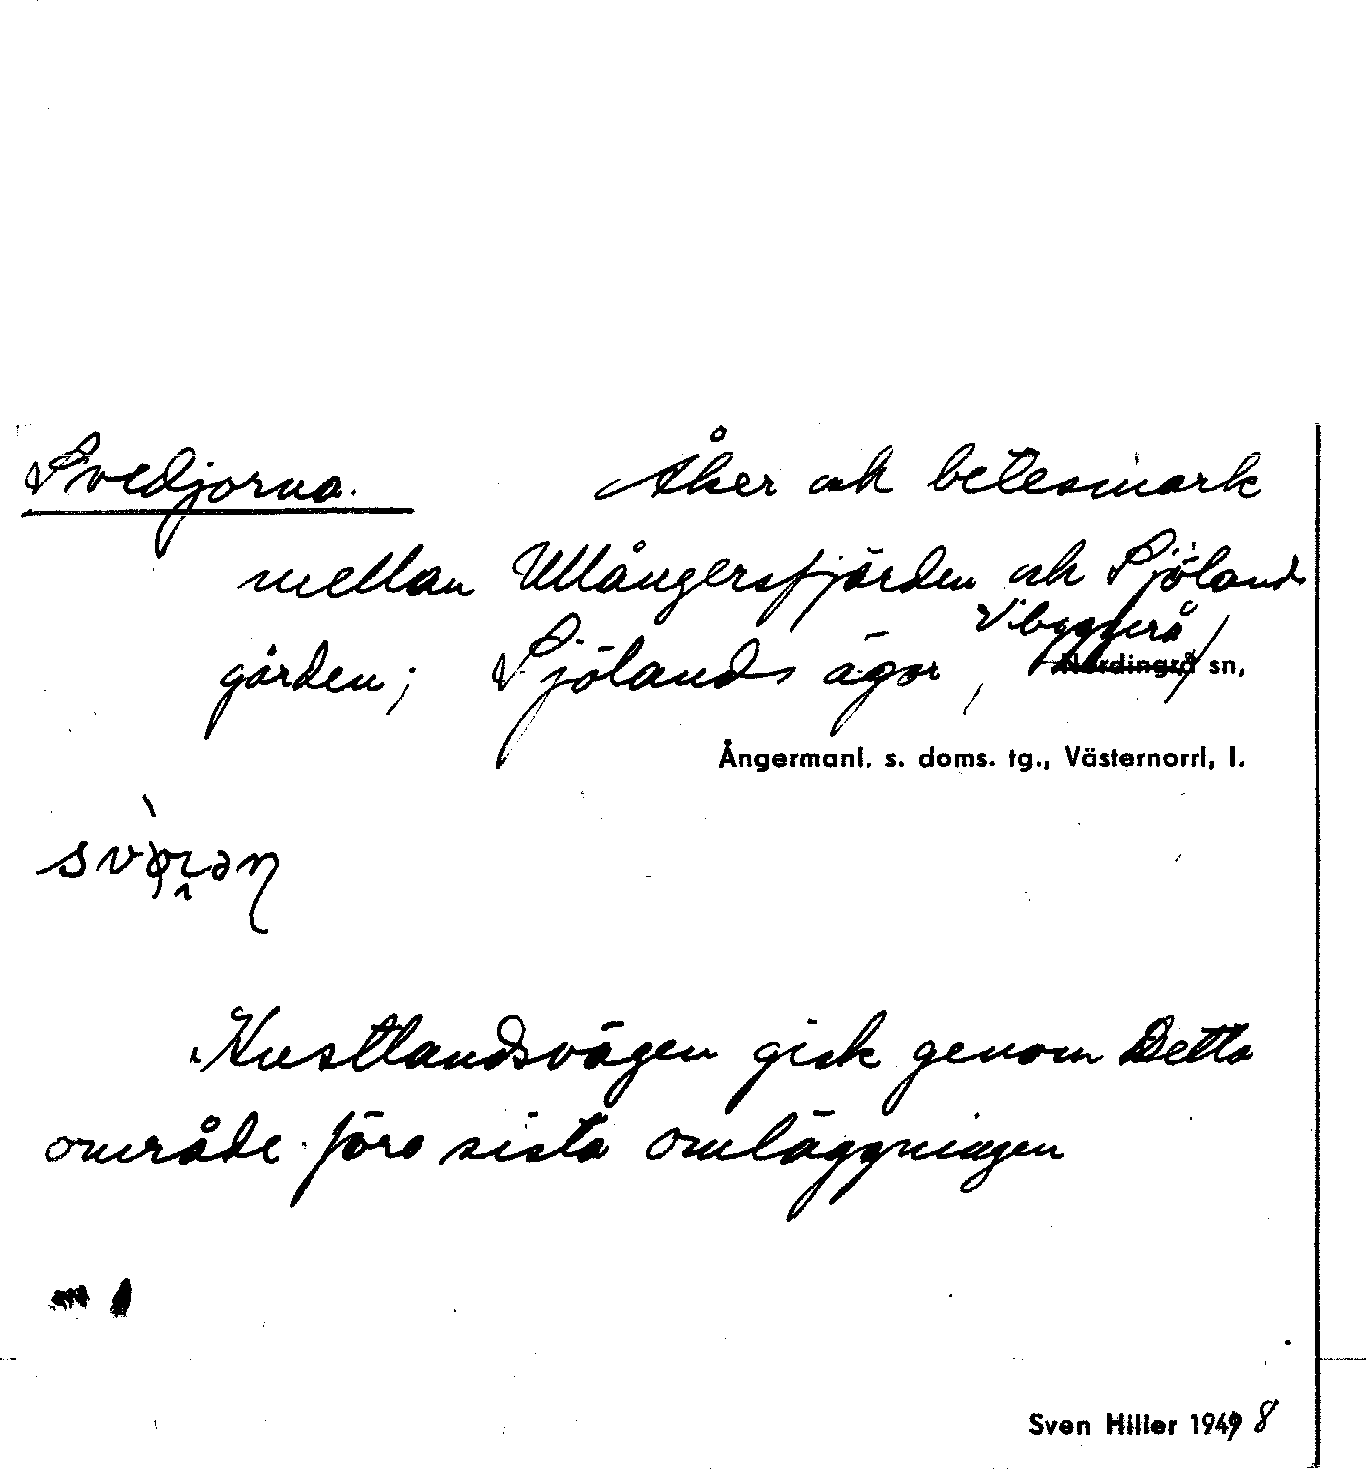 Svedjorna. Åker och betesmark
mellan Ullångersfjärden och Sjölands
gården; Sjölands ägor, Vibyggerå
Nordingrå sn,
Ångermanl. s. doms. tg., Västernorrl, l.
Kustlandsvägen gick genom detta
område före sista omläggningen
Sven Hiller 1949 8